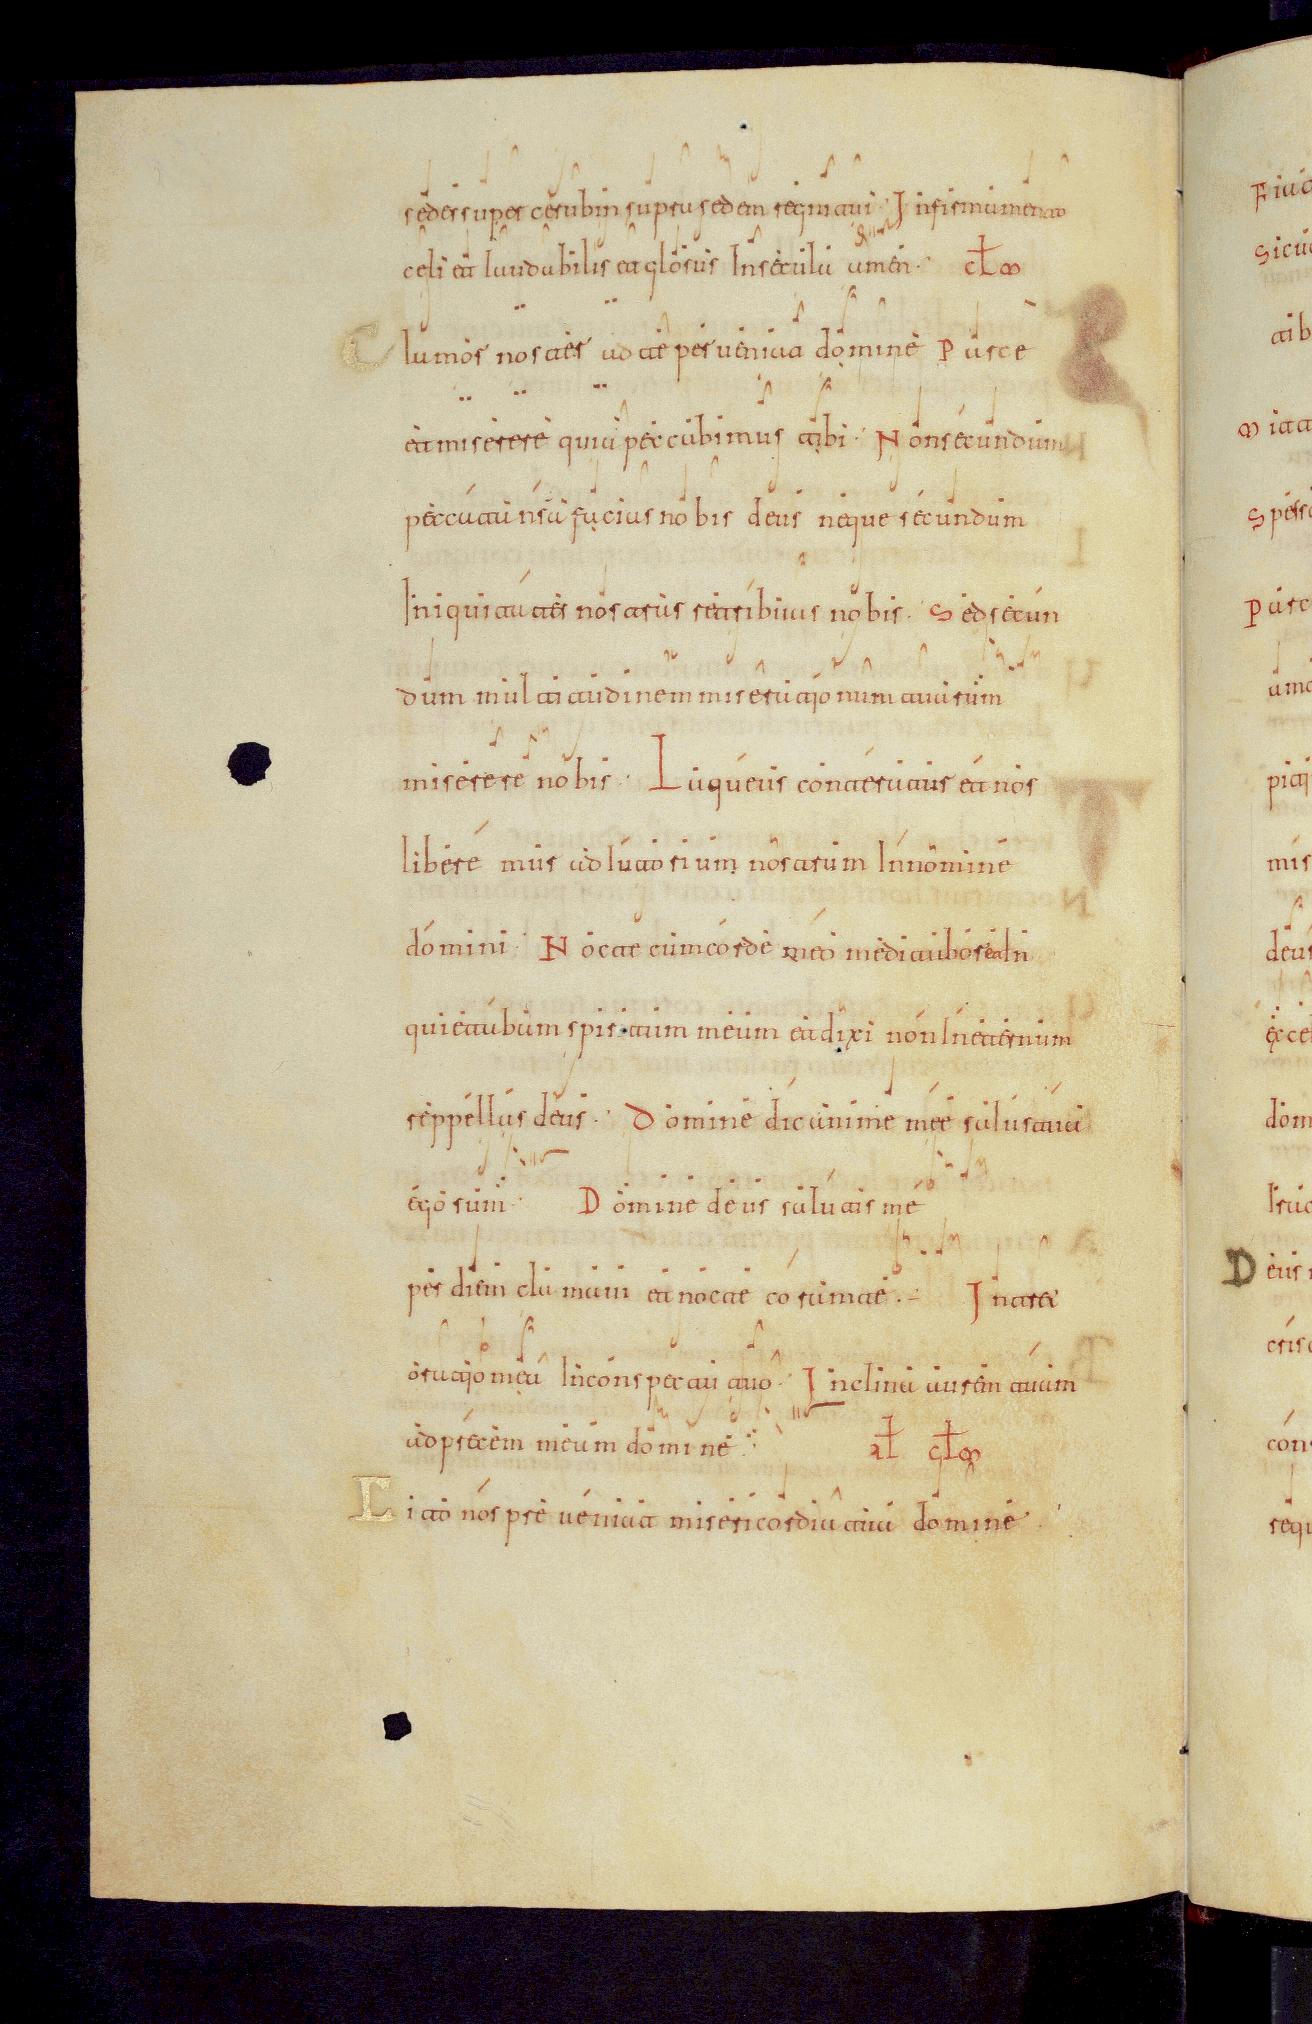 sedes super cerubin supra sedem regni tui. In firmamento
celi et laudabilis et glosus In secula amen.
Clamor noster ad te perveniat domine Parce
et miserere quia peccabimus tibi. Non secundum
peccata nra facias nobis deus neque secundum
Iniquitates nostras retribuas nobis. Sed secun
dum multitudinem miserationum tuarum
miserere nobis. Laqueus conteratus et nos
liberemus adiutorium nostrum In nomine
domini. Nocte cum corde meo meditabor et In
quietabam spiritum meum et dixi non In eternum
seppellas deus. Domine dic anime mee salus tua
ego sum. Domine deus salutis me
per diem clamavi et nocte coram te. Intret
oratio mea In conspectu tuo. Inclina aurem tuam
ad precem meum domine
Cito nos preveniat misericordia tua domine.